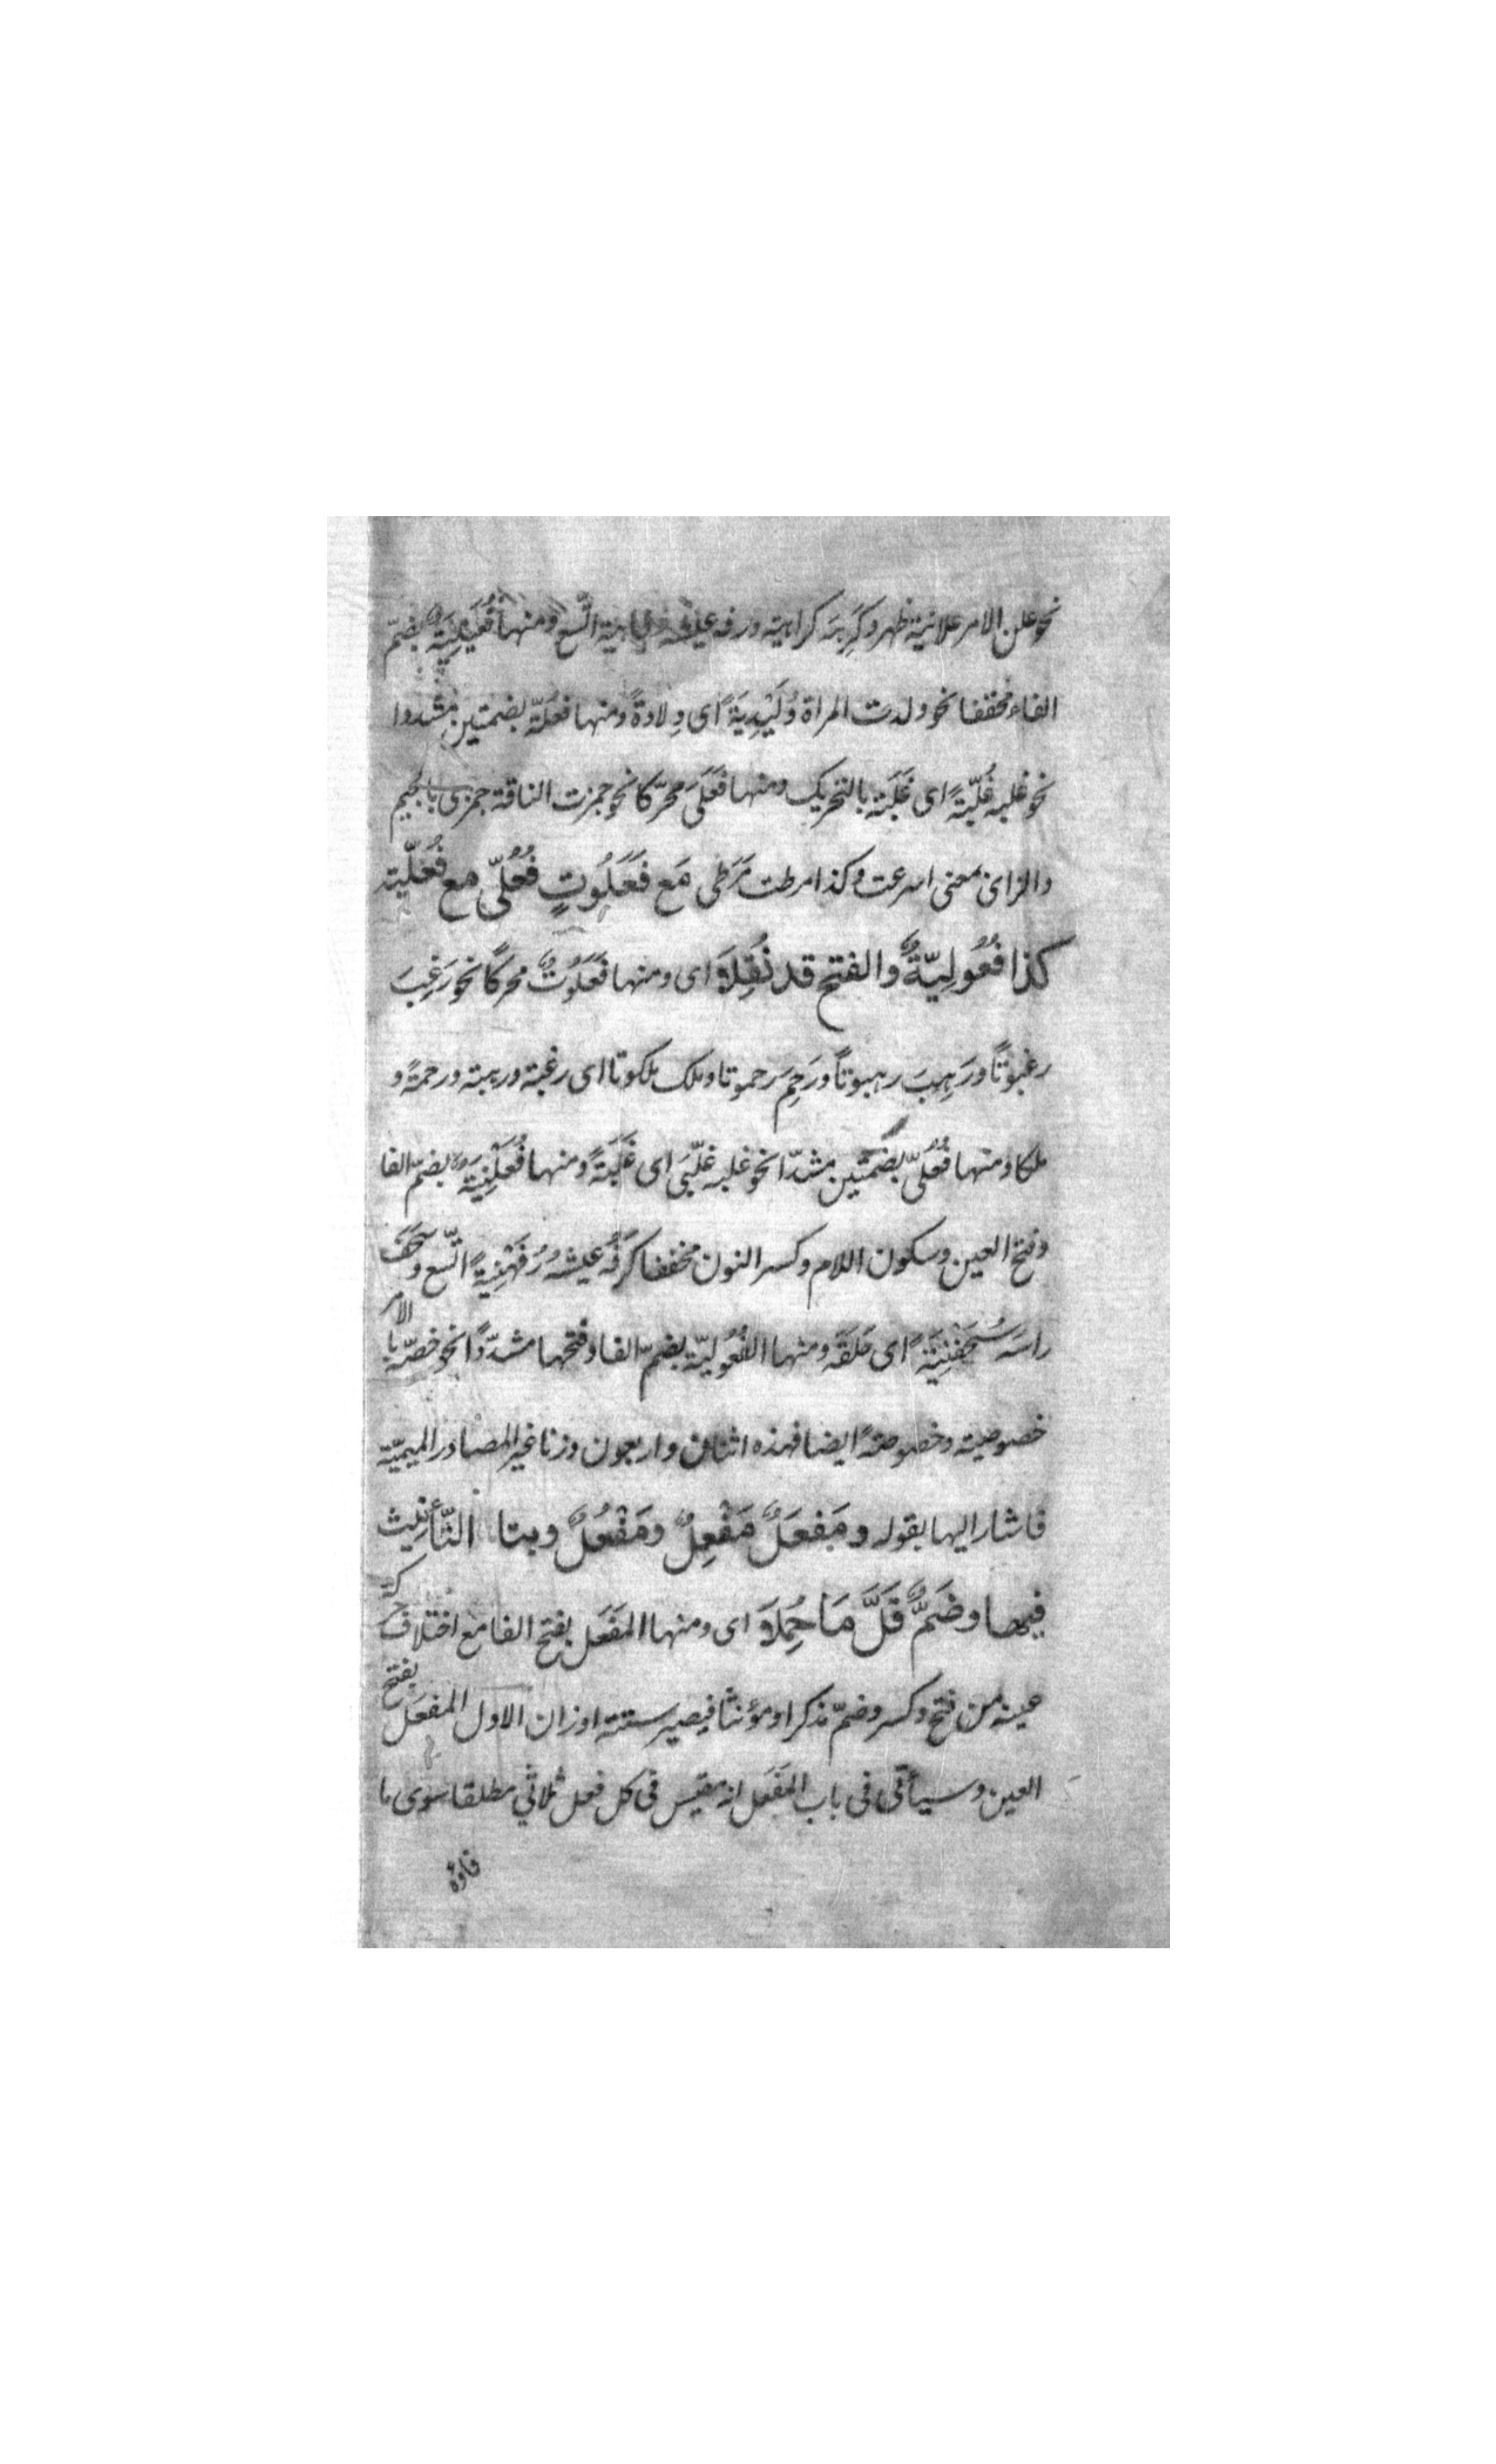 نحو علن الامر علانية ظهر وكَرِهَه كراهية ورفه عيشه رفاهية اتّسع ومنها فُعَيْلِيَةٌ بضمّ
الفاء مخففا نحو ولدت المراة وُلَيْدِيَةً اى وِلادةً ومنها فُعُلّة بضمتين مشددا
نحو غلبه غُلُبَّةً اى غَلَبَة بالتحريك ومنها فَعَلَى محرّكا نحو جمزت الناقة جمزى بالجيم
والزاى بمعنى اسرعت وكذا مرطت مَرَطى مَع فَعَلُوتٍ فُعُلّى مع فُعَلْنِية
كذا فُعُولِيّةٌ والفتح قد نُقِلَا اى ومنها فَعَلُوتٌ محركًا نحو رَغِبَ
رغبوتًا ورَهِبَ رهبوتًا ورَحِمَ رحموتا وملك ملكوتا اى رغبة ورهبة ورحمةً و
ملكا ومنها فُعُلّى بضمّتين مشدّدا نحو غلبه غلبّى اى غَلَبَةً ومنها فُعَلْنِيَةٌ بضمّ الفا
وفتح العين وسكون اللام وكسر النون مخففا كرَفُه عيشه رُفَهْنِيَةً اتّسع وسَحَفَ
راسَه سُحَفْنِيَةً اى حَلَقَه ومنها الفُعُوليّة بضمّ الفا وفتحها مشدّدًا نحو خصّه بالامر
خصوصية وخصوصيّةً ايضا فهذه اثنان واربعون وزنا غير المصادر الميميّة
فاشار اليها بقوله ومَفعَلٌ مَفْعِلٌ ومَفْعُلٌ وبتا التّأنيث
فيها وضَمٌّ قَلَّ مَا حُمِلَا اى ومنها المَفعَل بفتح الفا مع اختلاف حركة
عينه من فتح وكسر وضمّ مذكرا ومؤنثا فيصير ستة اوزان الاول المفعَل بفتح
العين وسيأتى فى باب المَفعَل انه مقيس فى كل فعل ثلاثي مطلقا سوى ما
فاؤه